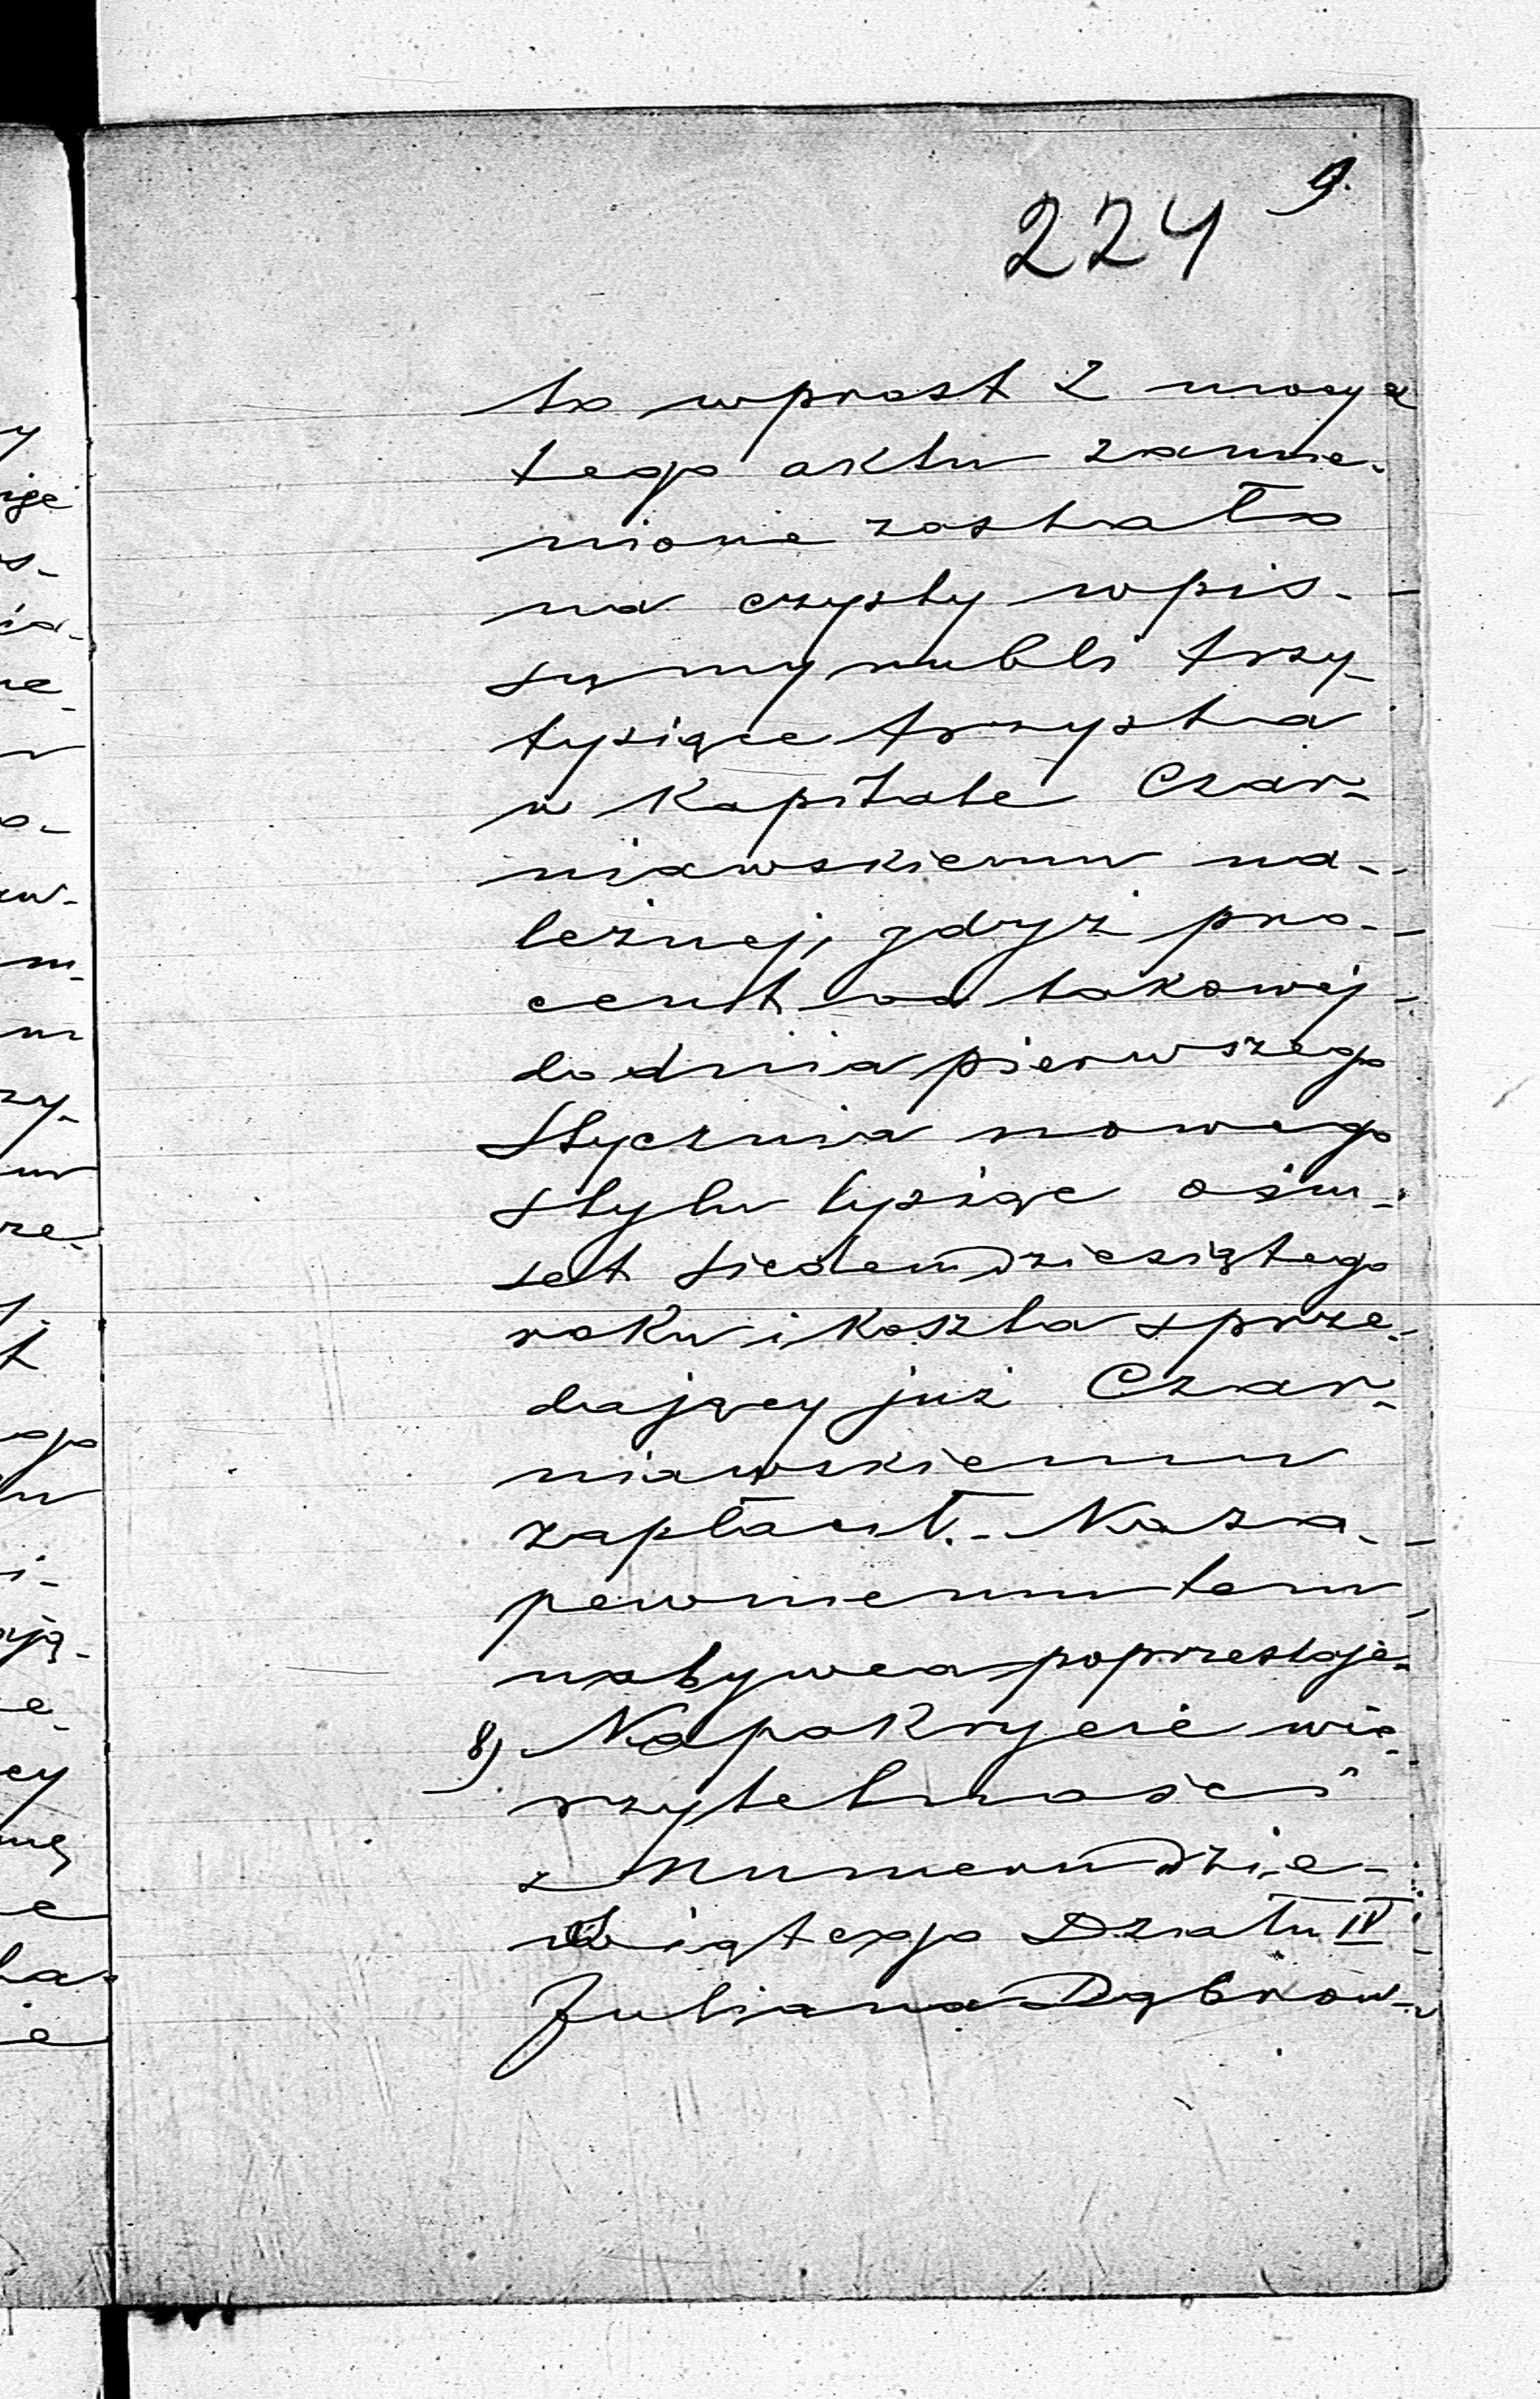 9.
224
to wprost z mocy
tego aktu zamie-
nione zostało
na czysty wpis-
sumy rubli trzy-
tysiące trzysta
w kapitale Czar-
niawskiemu na-
leżnej, gdyż pro-
cent od takowej
do dnia pierwszego
Stycznia nowego
stylu tysiąc ośm-
set siedemdziesiątego
roku i koszta sprze-
dający już Czar-
niawskiemu
zapłacił.- Na za-
pewnieniu tem
nabywca poprzestaje.
8) Na pokrycie wie-
rzytelności
z Numeru dzie-
wiątego Działu IV
Juliana Dąbrow-